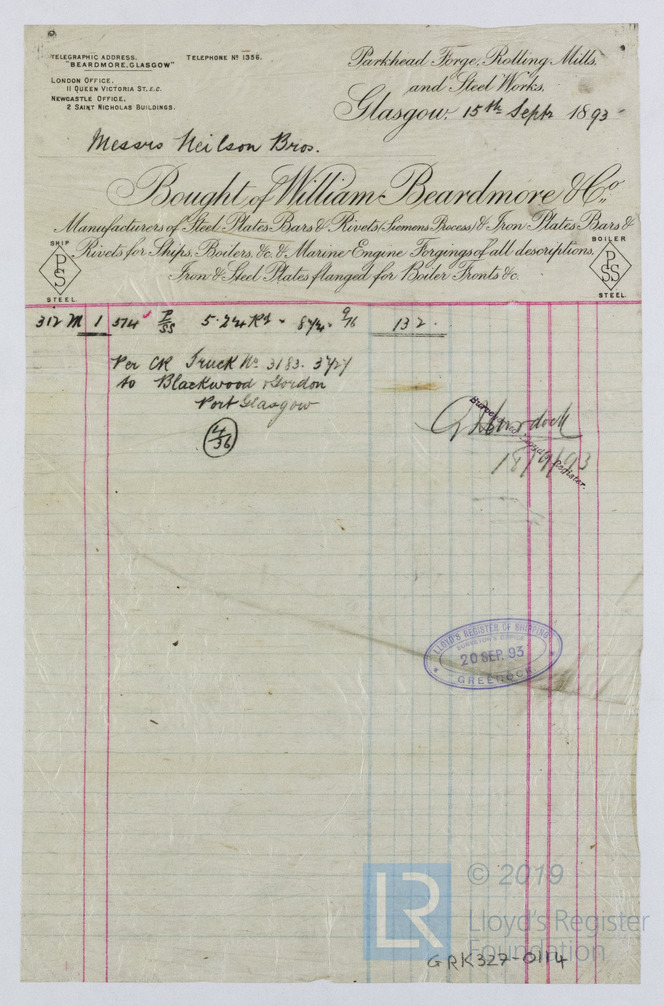 TELEGRAPHIC ADDRESS,
"BEARDMORE, GLASGOW"
TELEPHONE No 1356.
LONDON OFFICE,
11 QUEEN VICTORIA ST. E.C.
NEWCASTLE OFFICE,
2 SAINT NICHOLAS BUILDINGS.
Parkhead Forge, Rolling Mills,
and Steel Works.
Glasgow, 15th Sept 1893
Messrs Neilson Bros.
Bought of William Beardmore & Co.,
Manufacturers of Steel Plates Bars & Rivets (Siemens Process) & Iron Plates Bars &
Rivets for Ships, Boilers, &c. & Marine Engine Forgings of all descriptions,
Iron & Steel Plates flanged for Boiler Fronts &c.
SHIP
PSS
STEEL.
BOILER
PSS
STEEL.
312 M 1 574 P/SS 5.2 8 9/16 13 2.
Per CR Truck No 3183.
to Blackwood & Gordon
Port Glasgow
4/36
Murdoch
Surveyor to Lloyd's Register.
18/9/93
LLOYD'S REGISTER OF SHIPPING
20 SEP. 93
GREENOCK.
LR
© 2019
Lloyd's Register
Foundation
GRK327-0114